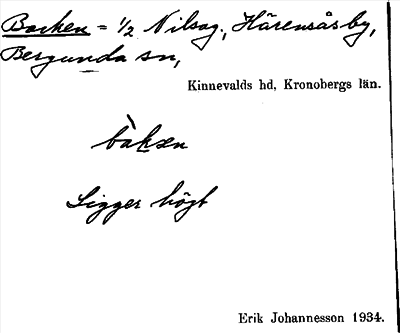 Backen = 1/2 Nilsag., Härensås by,
Bergunda sn,
Kinnevalds hd, Kronobergs län.
bàkæn
Ligger högt
Erik Johannesson 1934.